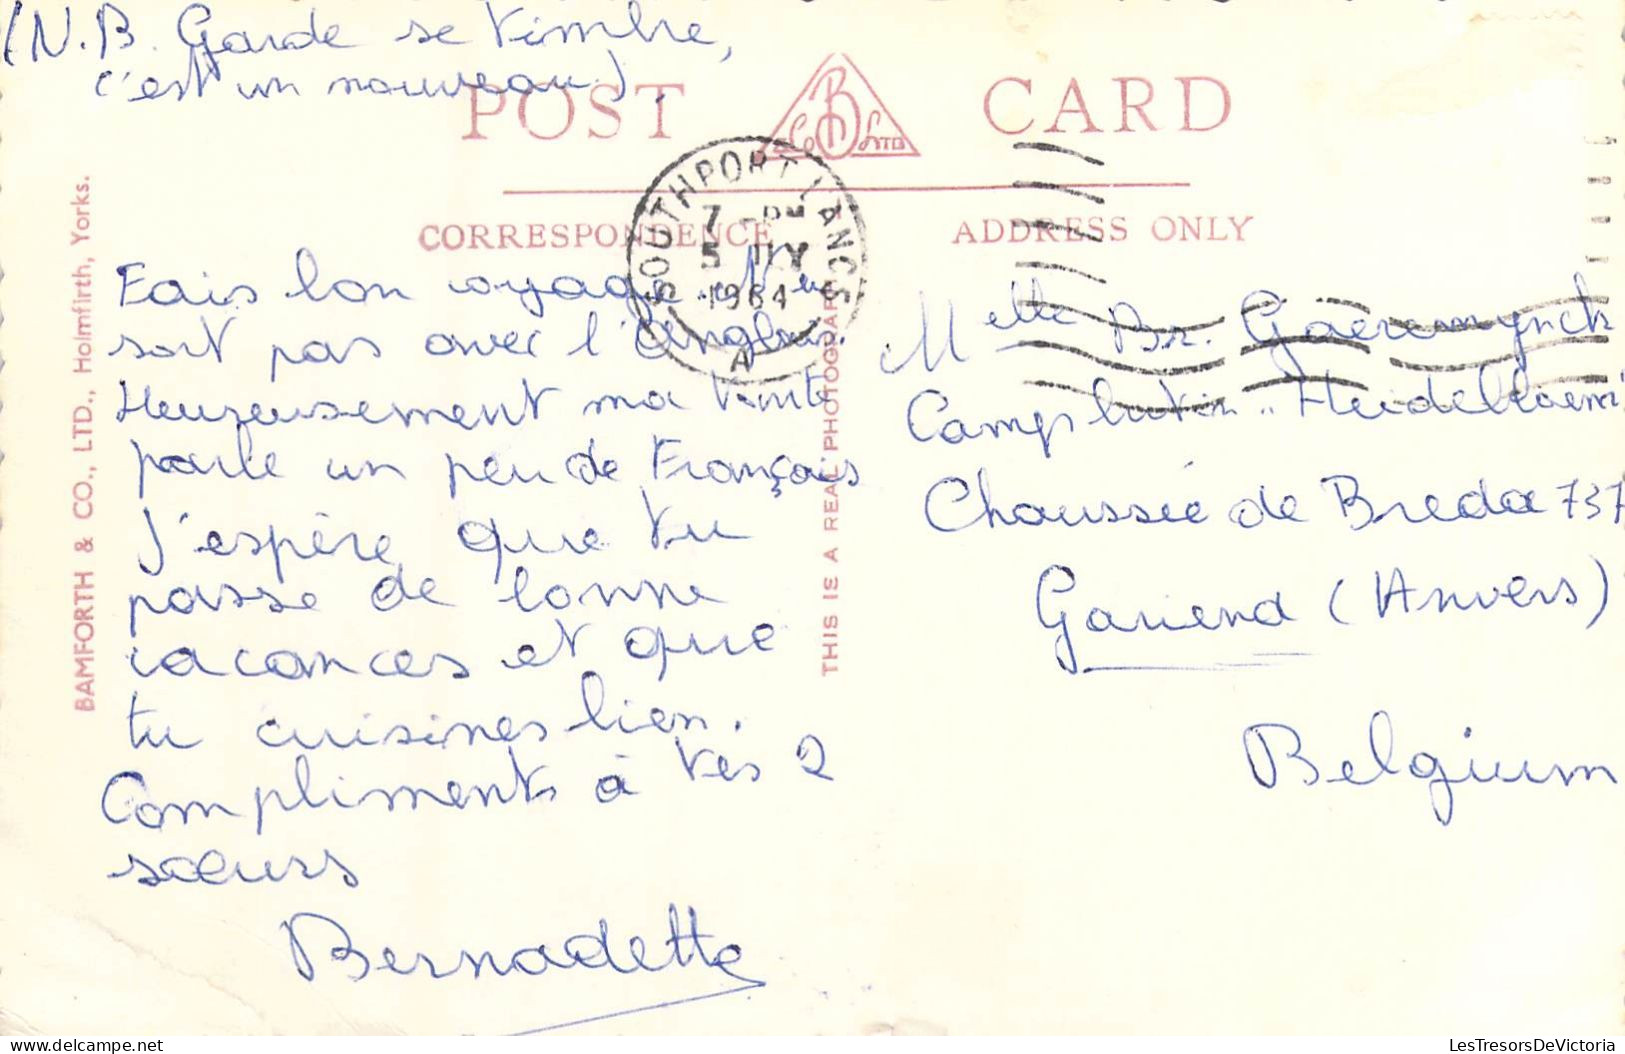 (N.B. Garde se timbre,
c'est un nouveau).
POST CARD
B & Co LTD
SOUTHPORT LANCS
7 - PM
5
1964
A
CORRESPONDENCE
ADDRESS ONLY
BAMFORTH & CO., LTD., Holmfirth, Yorks.
THIS IS A REAL PHOTOGRAPH
Fais bon voyage. Ne
sort pas avec l'Anglais.
Heureusement ma tante
parle un peu de Français
J'espère que tu
passe de bonne
vacances et que
tu cuisines bien.
Compliments à tes 2
sœurs
Bernadette
Melle Br. Gaeremynck
Chaussée de Breda 737
(Anvers)
Belgium
LesTresorsDeVictoria